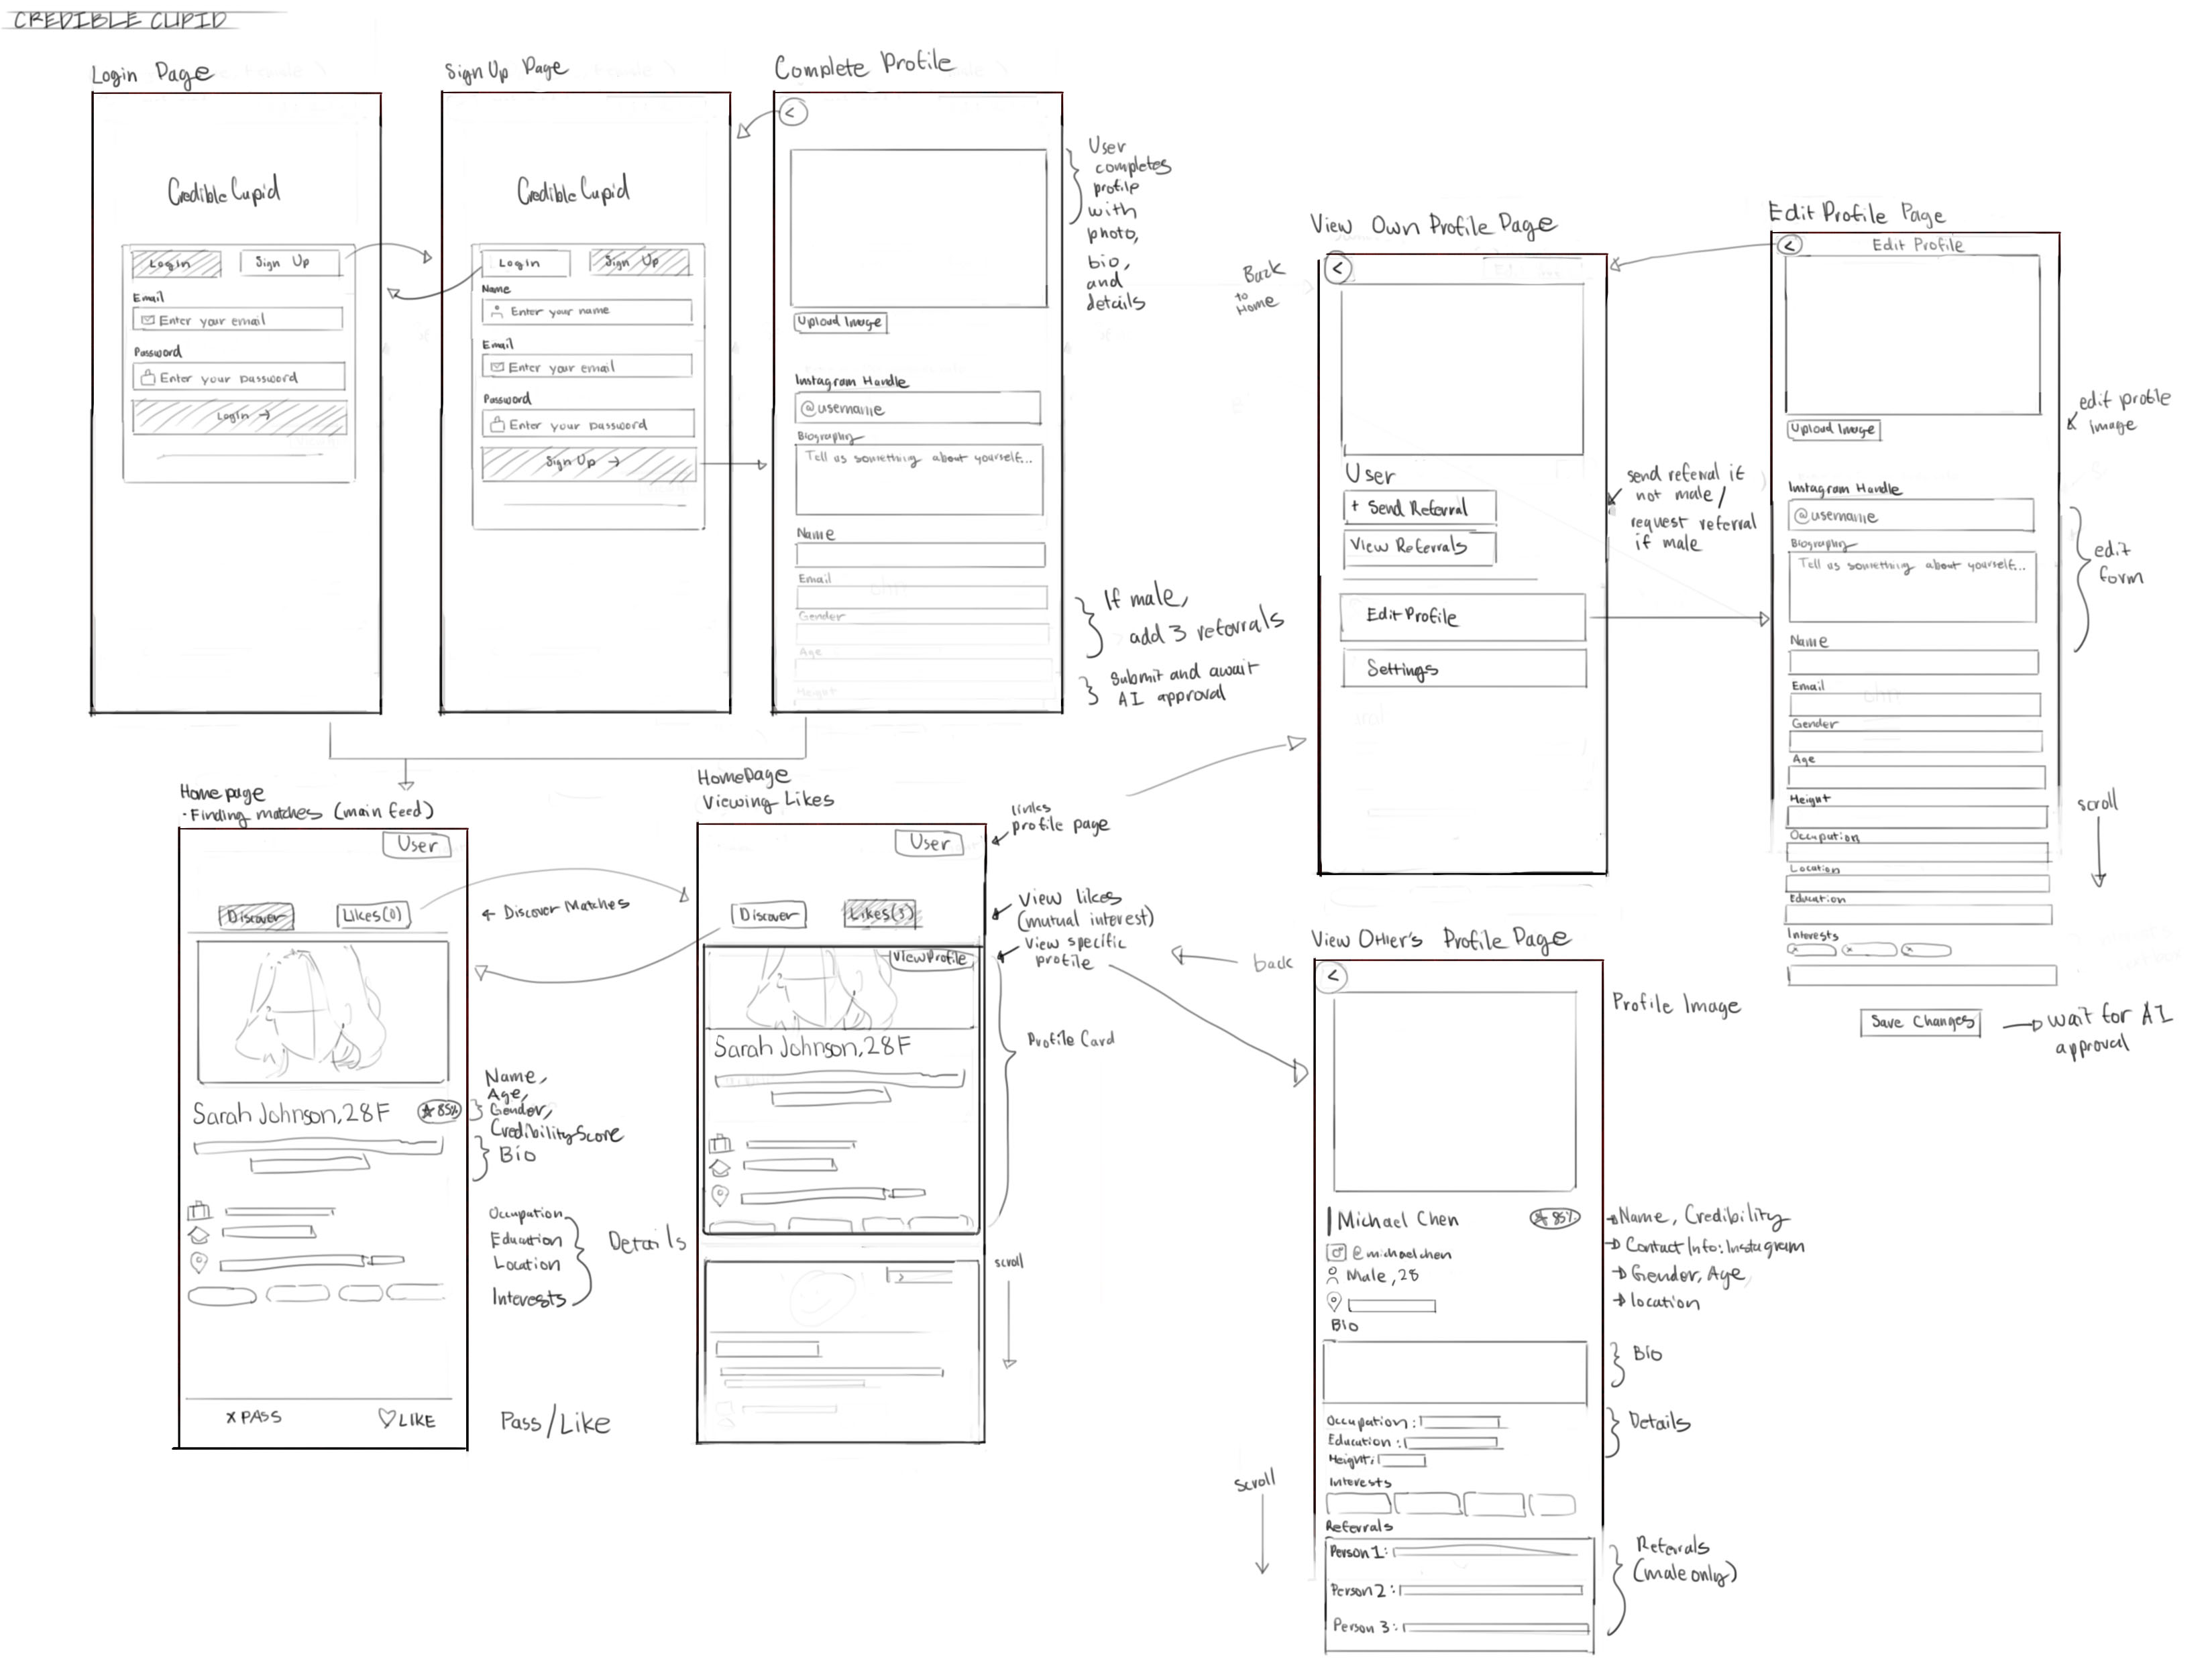 CREDIBLE CUPID
Login Page
Credible Cupid
Login
Sign Up
Email
Enter your email
Password
Enter your password
Login →
Sign Up Page
Credible Cupid
Login
Sign Up
Name
Enter your name
Email
Enter your email
Password
Enter your password
Sign Up →
Complete Profile
<
Upload Image
Instagram Handle
@username
Biography
Tell us something about yourself...
Name
Email
Gender
Age
Height
User
completes
profile
with
photo,
bio,
and
details
If male,
add 3 referrals
Submit and await
AI approval
Back
to
Home
View Own Profile Page
<
User
+ Send Referral
View Referrals
Edit Profile
Settings
send referral if
not male/
request referral
if male
Edit Profile Page
<
Edit Profile
Upload Image
Instagram Handle
@username
Biography
Tell us something about yourself...
Name
Email
Gender
Age
Height
Occupation
Location
Education
Interests
x
x
x
Save Changes
wait for AI
approval
edit profile
image
edit
form
scroll
Home page
·Finding matches (main feed)
User
Discover
Likes(0)
Sarah Johnson, 28 F
85%
X PASS
LIKE
Discover Matches
Name,
Age,
Gender,
Credibility Score
Bio
Occupation
Education
Location
Interests
Details
Pass/Like
HomePage
Viewing Likes
User
Discover
Likes(3)
View Profile
Sarah Johnson, 28 F
links
profile page
View likes
(mutual interest)
View specific
profile
Profile Card
scroll
back
View Other's Profile Page
<
Michael Chen
85%
@michaelchen
Male, 28
BIO
Occupation:
Education:
Height:
Interests
Referrals
Person 1:
Person 2:
Person 3:
Profile Image
Name, Credibility
Contact Info: Instagram
Gender, Age
location
Bio
Details
Referrals
(male only)
scroll